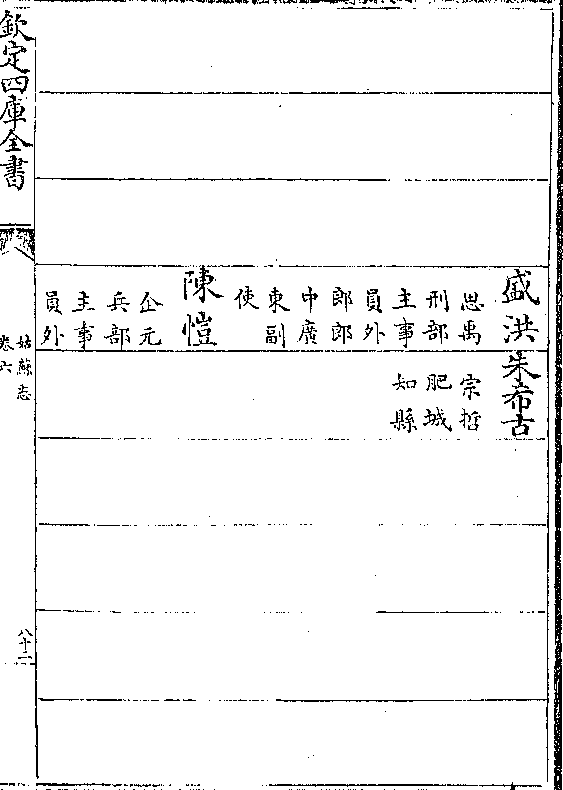 盛洪
思禹
刑部
主事
員外
郎郎
中廣
東副
使
陳愷
企元
兵部
主事
員外
朱希古
宗哲
肥城
知縣
欽定四庫全書
姑蘇志
卷六
八十二